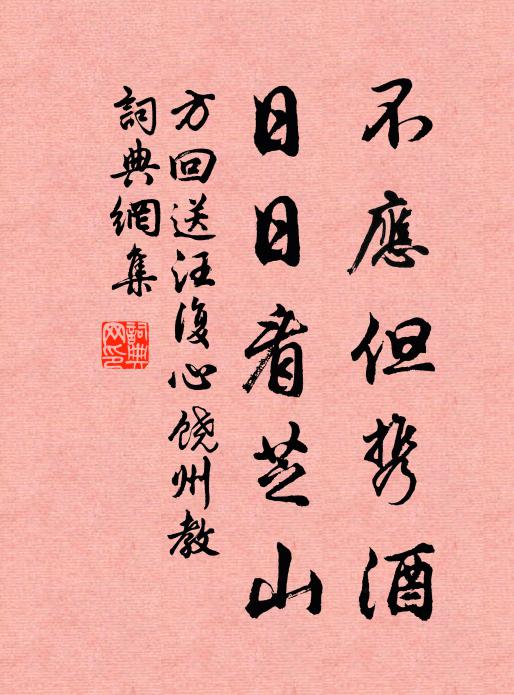 不應但携酒
日日看芝山
方回送汪復心饒州教
詞典網集
詞典网印